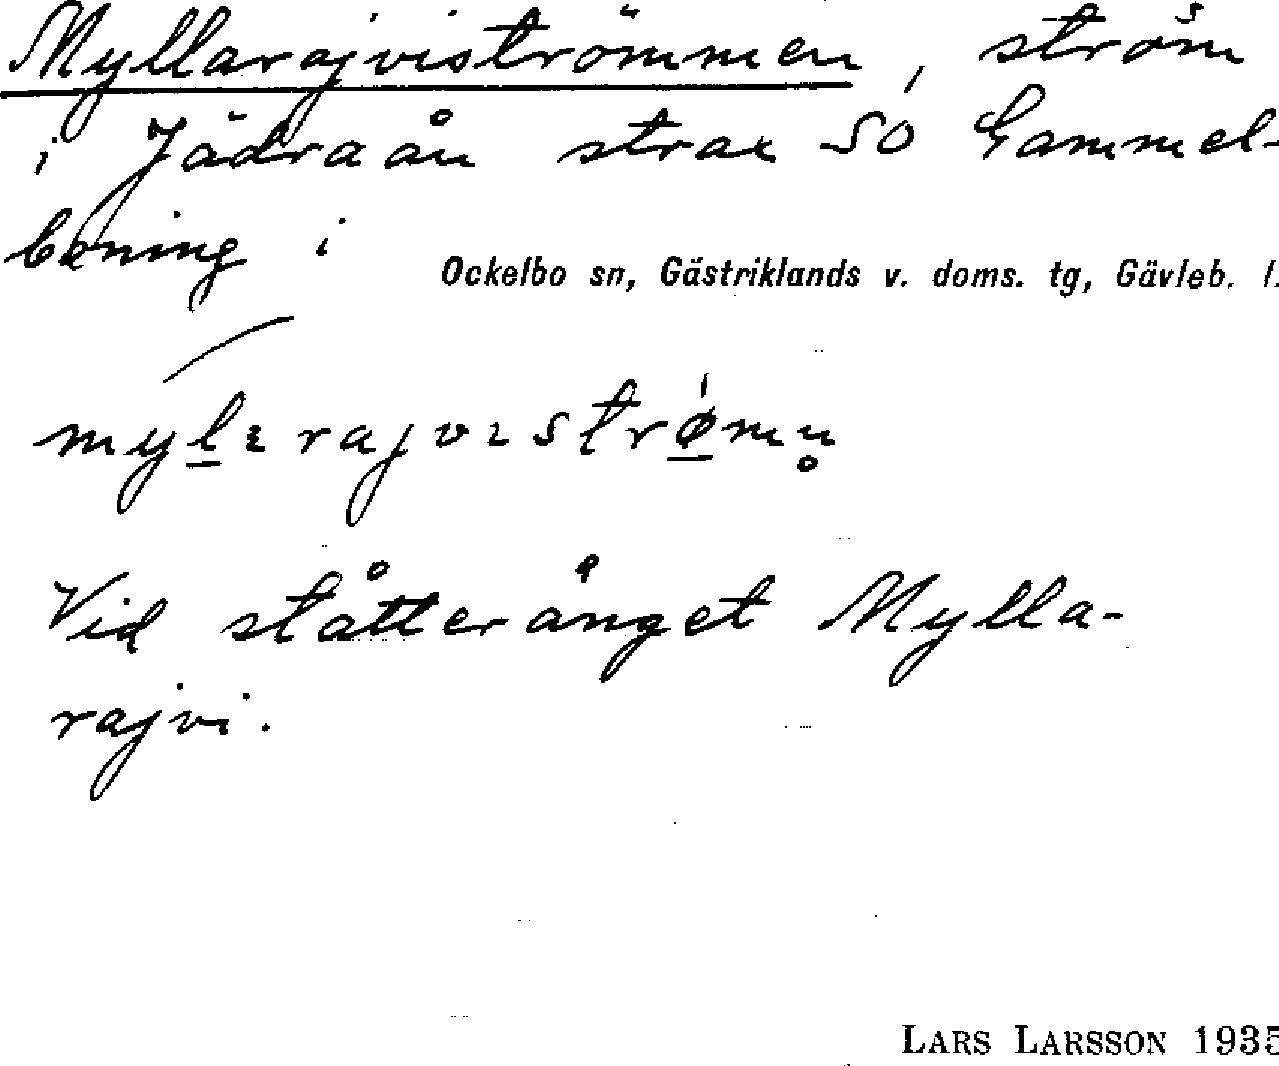 Myllarajviströmmen, ström
i Jädraån strax SÖ Gammel-
bening i
Ockelbo sn, Gästriklands v. doms. tg, Gävleb. l.
Vid slåtteränget Mylla-
rajvi.
LARS LARSSON 1935